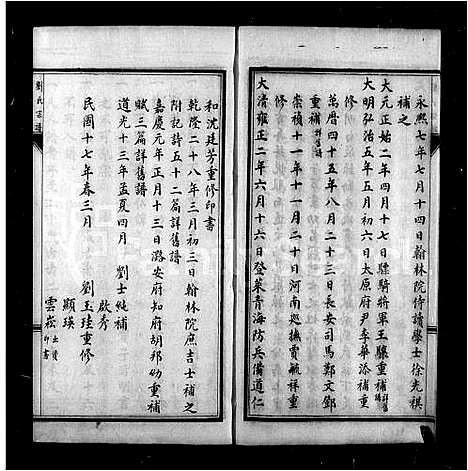 永熙七年七月十四日翰林院侍讀學士徐光祺
補之
大元正始二年四月十七日驃騎將軍王驥重補詳舊譜
大明弘治五年五月初六日太原府尹李華添補重
修
萬曆四十五年八月二十三日長安司馬鄭文鄧
重補詳舊譜
崇禎十一年十一月二十日河南廵撫賈毓祥重
修
大清雍正二年六月十六日登萊青海防兵備道仁
和沈廷芳重修印書
乾隆二十八年三月初三日翰林院庶吉士補之
附記詩五十二篇詳舊譜
嘉慶元年正月十三日潞安府知府胡邦幼重補
賦三篇詳舊譜
道光十三年孟夏四月 劉士純補
啟秀
民國十七年春三月 劉玉珪重修
顯瑛
雲崧出資印書
劉氏宗譜